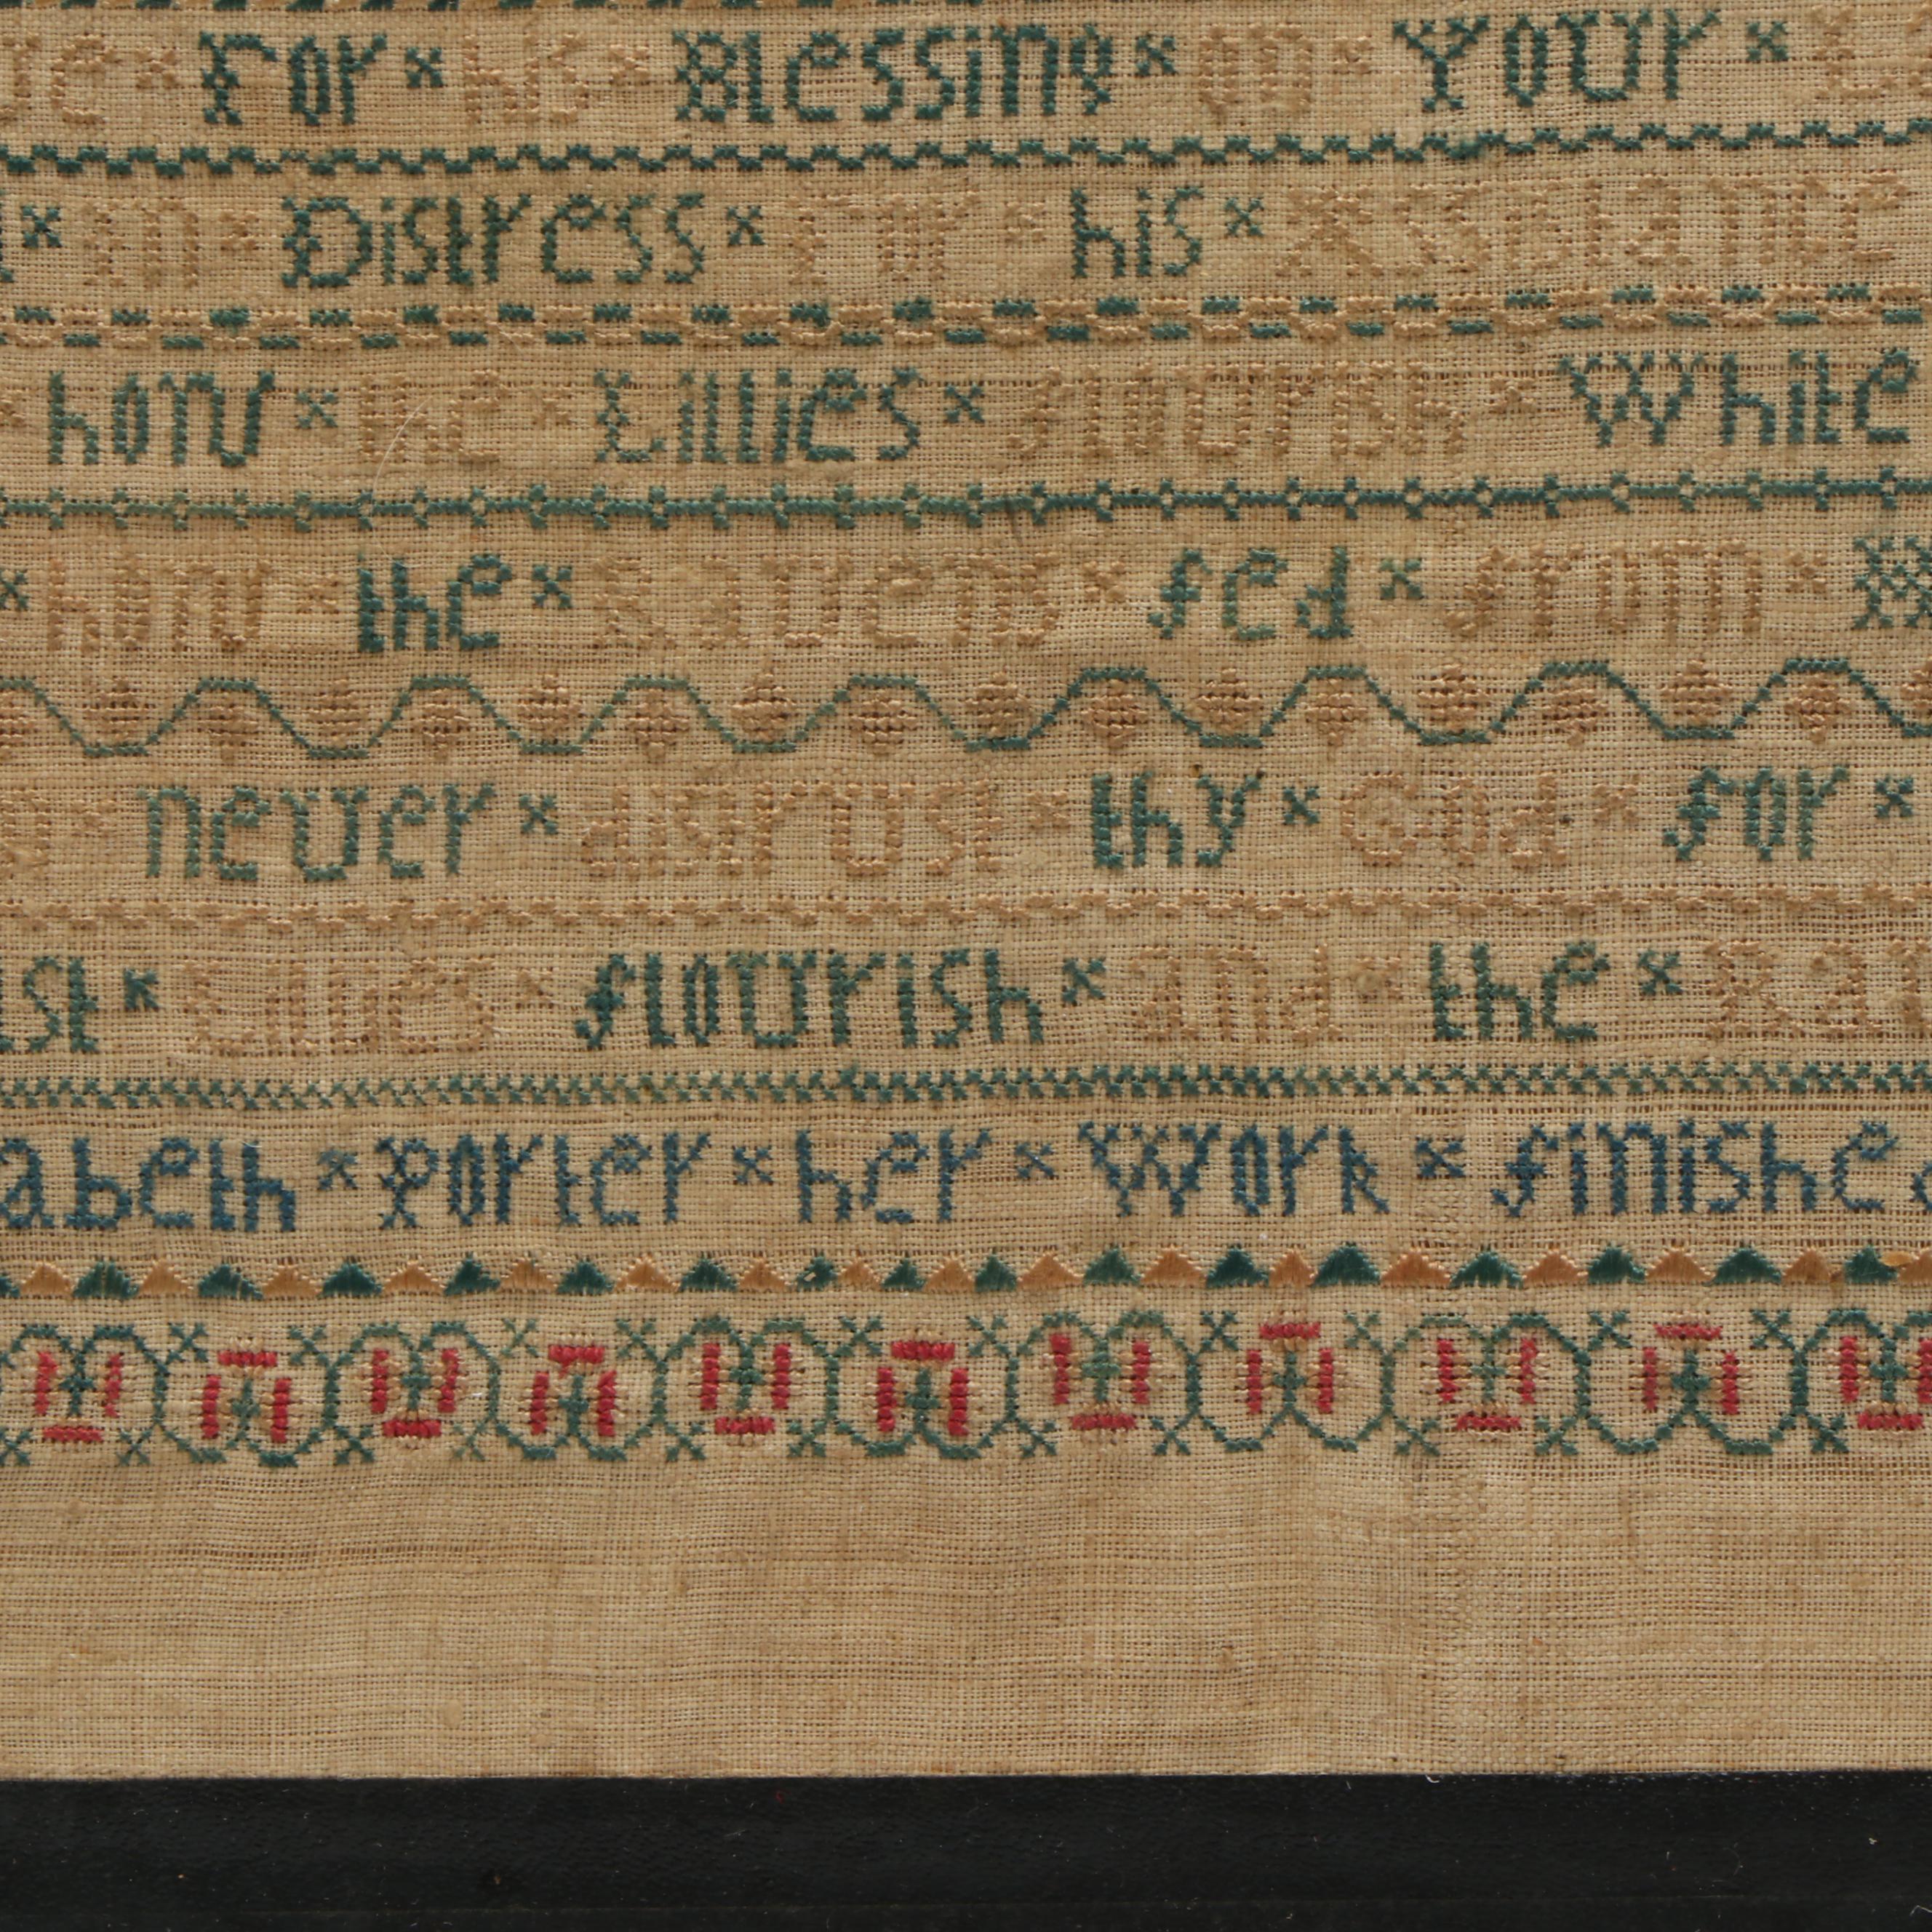 For his Blessing on Your
in Distress For his Assistance
how the Lillies flourish White
how the Ravens fed from
never distrust thy God for
Lillies flourish and the
abeth Porter her Work finished